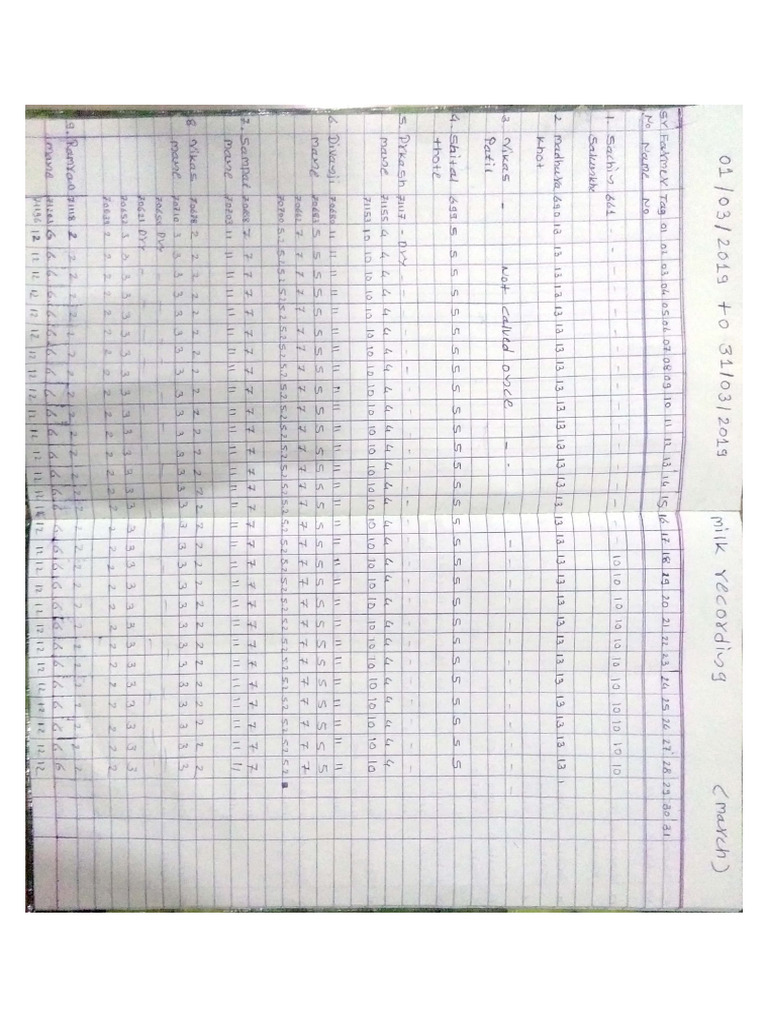 01/03/2019 to 31/03/2019 milk recording (march)
Sr Farmer Tag 01 02 03 04 05 06 07 08 09 10 11 12 13 14 15 16 17 18 19 20 21 22 23 24 25 26 27 28 29 30 31
No Name No
1. Sachin 661 - - - - - - - - - - - - - - - - - 10 10 10 10 10 10 10 10 10 10 10
2 Madhura 690 13 13 13 13 13 13 13 13 13 13 13 13 13 13 13 13 13 13 13 13 13 13 13 13 13 13 13 13
Khot
3 Vikas - Not calved once - -
Patil
4. Shital 699 5 5 5 5 5 5 5 5 5 5 5 5 5 5 5 5 5 5 5 5 5 5 5 5 5 5 5 5
thote
5 Prkash 71117 - DVY -
mane 71155 4 4 4 4 4 4 4 4 4 4 4 4 4 4 4 4 4 4 4 4 4 4 4 4 4 4 4 4
71153 10 10 10 10 10 10 10 10 10 10 10 10 10 10 10 10 10 10 10 10 10 10 10 10 10 10 10 10
6 Divanji 70680 11 11 11 11 11 11 11 11 11 11 11 11 11 11 11 11 11 11 11 11 11 11 11 11 11 11 11 11
mane 70683 5 5 5 5 5 5 5 5 5 5 5 5 5 5 5 5 5 5 5 5 5 5 5 5 5 5 5 5
70662 7 7 7 7 7 7 7 7 7 7 7 7 7 7 7 7 7 7 7 7 7 7 7 7 7 7 7 7
70700 5.2 5.2 5.2 5.2 5.2 5.2 5.2 5.2 5.2 5.2 5.2 5.2 5.2 5.2 5.2 5.2 5.2 5.2 5.2 5.2 5.2 5.2 5.2 5.2 5.2 5.2 5.2 5.2
7. Sampat 70658 7 7 7 7 7 7 7 7 7 7 7 7 7 7 7 7 7 7 7 7 7 7 7 7 7 7 7 7
mane 70703 11 11 11 11 11 11 11 11 11 11 11 11 11 11 11 11 11 11 11 11 11 11 11 11 11 11 11 11
8 Vikas 70678 2 2 2 2 2 2 2 2 2 2 2 2 2 2 2 2 2 2 2 2 2 2 2 2 2 2 2 2
mane 70710 3 3 3 3 3 3 3 3 3 3 3 3 3 3 3 3 3 3 3 3 3 3 3 3 3 3 3 3
70650 DVY
70621 DVY
70652 3 3 3 3 3 3 3 3 3 3 3 3 3 3 3 3 3 3 3 3 3 3 3 3 3 3 3 3
70639 2 2 2 2 2 2 2 2 2 2 2 2 2 2 2 2 2 2 2 2 2 2 2 2 2 2 2 2
9. Ramrao 71118 2 2 2 2 2 2 2 2 2 2 2 2 2 2 2 2 2 2 2 2 2 2 2 2 2 2 2 2
mane 71203 6 6 6 6 6 6 6 6 6 6 6 6 6 6 6 6 6 6 6 6 6 6 6 6 6 6 6 6
71196 12 12 12 12 12 12 12 12 12 12 12 12 12 12 12 12 12 12 12 12 12 12 12 12 12 12 12 12